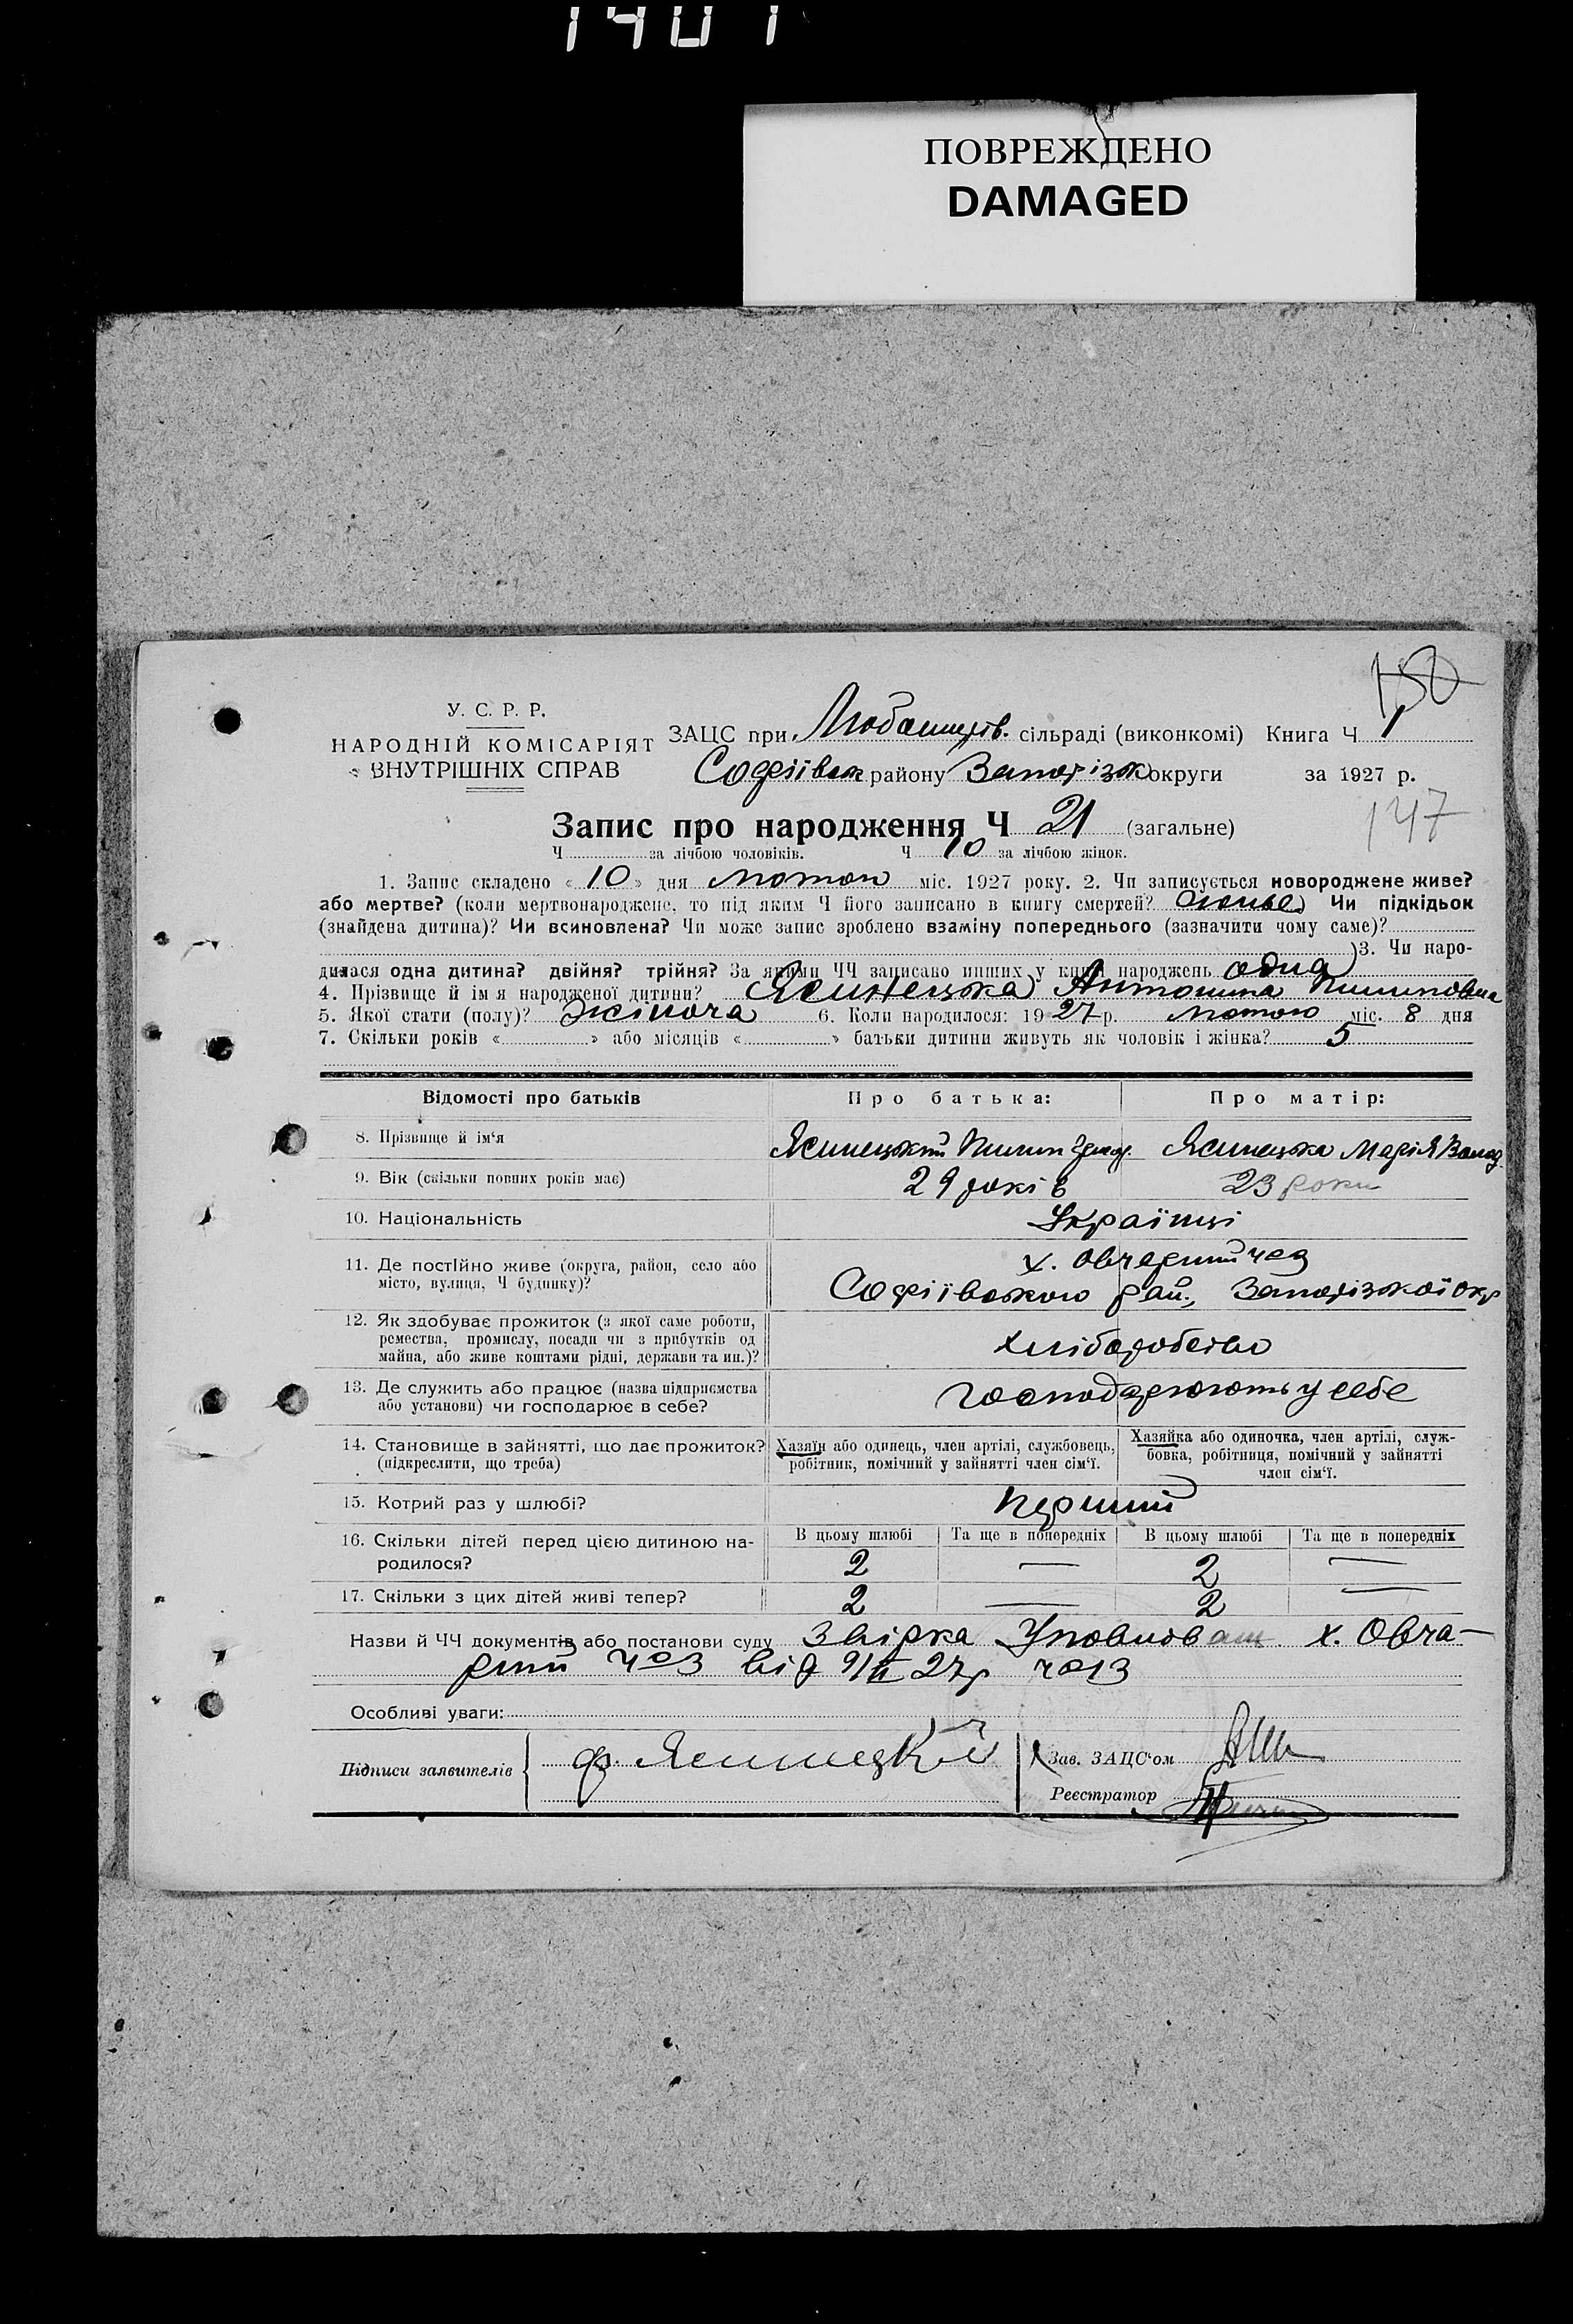 1401
ПОВРЕЖДЕНО
DAMAGED
150
У. С. Р. Р.
НАРОДНІЙ КОМІСАРІЯТ
ВНУТРІШНІХ СПРАВ
ЗАЦС при сільраді (виконкомі) Книга Ч 1
Софіївськ району Запорізьк округи за 1927 р.
147
Запис про народження Ч 21 (загальне)
Ч за лічбою чоловіків. Ч 10 за лічбою жінок.
1. Запис складено « 10 » дня лютого міс. 1927 року. 2. Чи записується новороджене живе?
або мертве? (коли мертвонароджене, то під яким Ч його записано в книгу смертей? живе Чи підкідьок
(знайдена дитина)? Чи всиновлена? Чи може запис зроблено взаміну попереднього (зазначити чому саме)?
3. Чи наро-
дилася одна дитина? двійня? трійня? За якими ЧЧ записано инших у книзі народжень одна
4. Прізвище й ім'я народженої дитини? Ясинецька Антонина Пилиповна
5. Якої стати (полу)? Жіноча 6. Коли народилося: 19 27 р. лютого міс. 8 дня
7. Скільки років « » або місяців « » батьки дитини живуть як чоловік і жінка? 5
Відомості про батьків Про батька: Про матір:
8. Прізвище й ім'я Ясинецький Пилип Ясинецька Марія
9. Вік (скільки повних років має) 29 років 23 роки
10. Національність Українці
11. Де постійно живе (округа, район, село або
місто, вулиця, Ч будинку)?
х.
Софіївського рай., Запорізької окр
12. Як здобуває прожиток (з якої саме роботи,
ремества, промислу, посади чи з прибутків од
майна, або живе коштами рідні, держави та ин.)?
хліборобство
13. Де служить або працює (назва підприємства
або установи) чи господарює в себе?
господарюють у себе
14. Становище в зайнятті, що дає прожиток?
(підкреслити, що треба)
Хазяїн або одинець, член артілі, службовець,
робітник, помічний у зайнятті член сім'ї.
Хазяйка або одиночка, член артілі, служ-
бовка, робітниця, помічний у зайнятті
член сім'ї.
15. Котрий раз у шлюбі? перший
В цьому шлюбі Та ще в попередніх В цьому шлюбі Та ще в попередніх
16. Скільки дітей перед цією дитиною на-
родилося?
2 — 2 —
17. Скільки з цих дітей живі тепер? 2 — 2 —
Назви й ЧЧ документів або постанови суду Звірка Уповноваж х. Овча-
рний від 9/II 27р
Особливі уваги:
Підписи заявителів
Зав. ЗАЦС'ом
Реєстратор